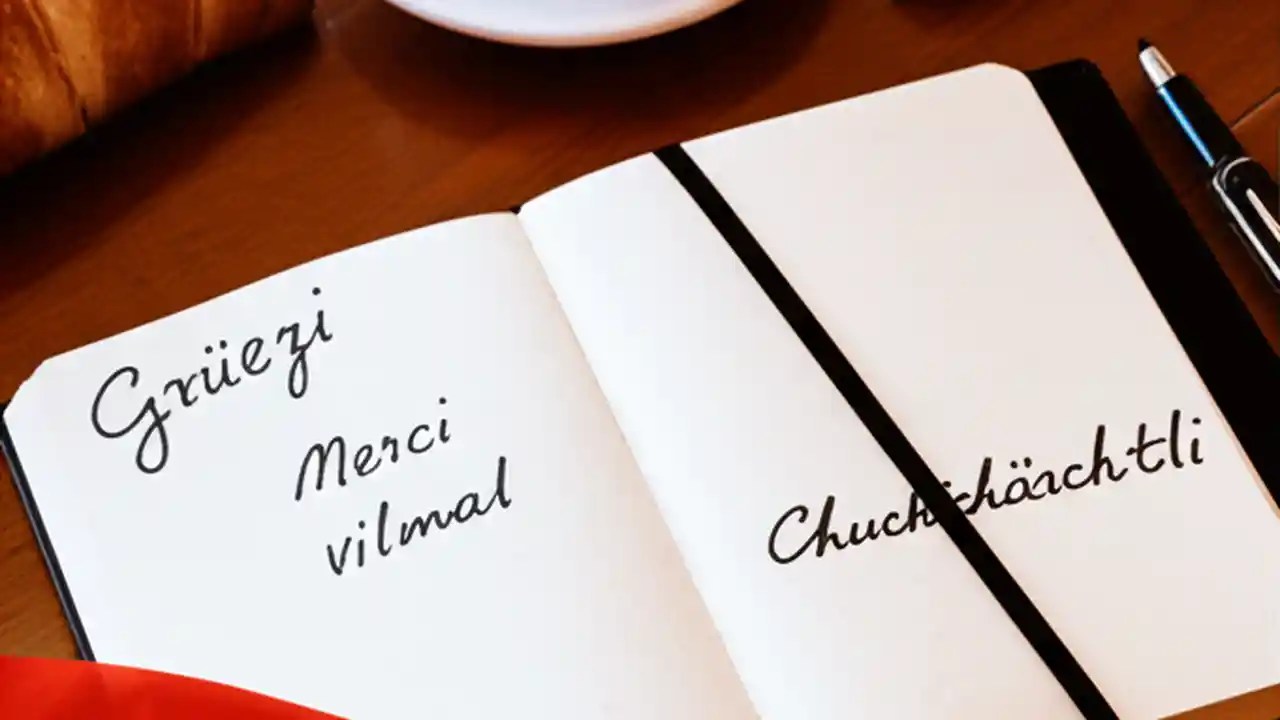 Grüezi
Merci
vilmal
Chuchichäschtli